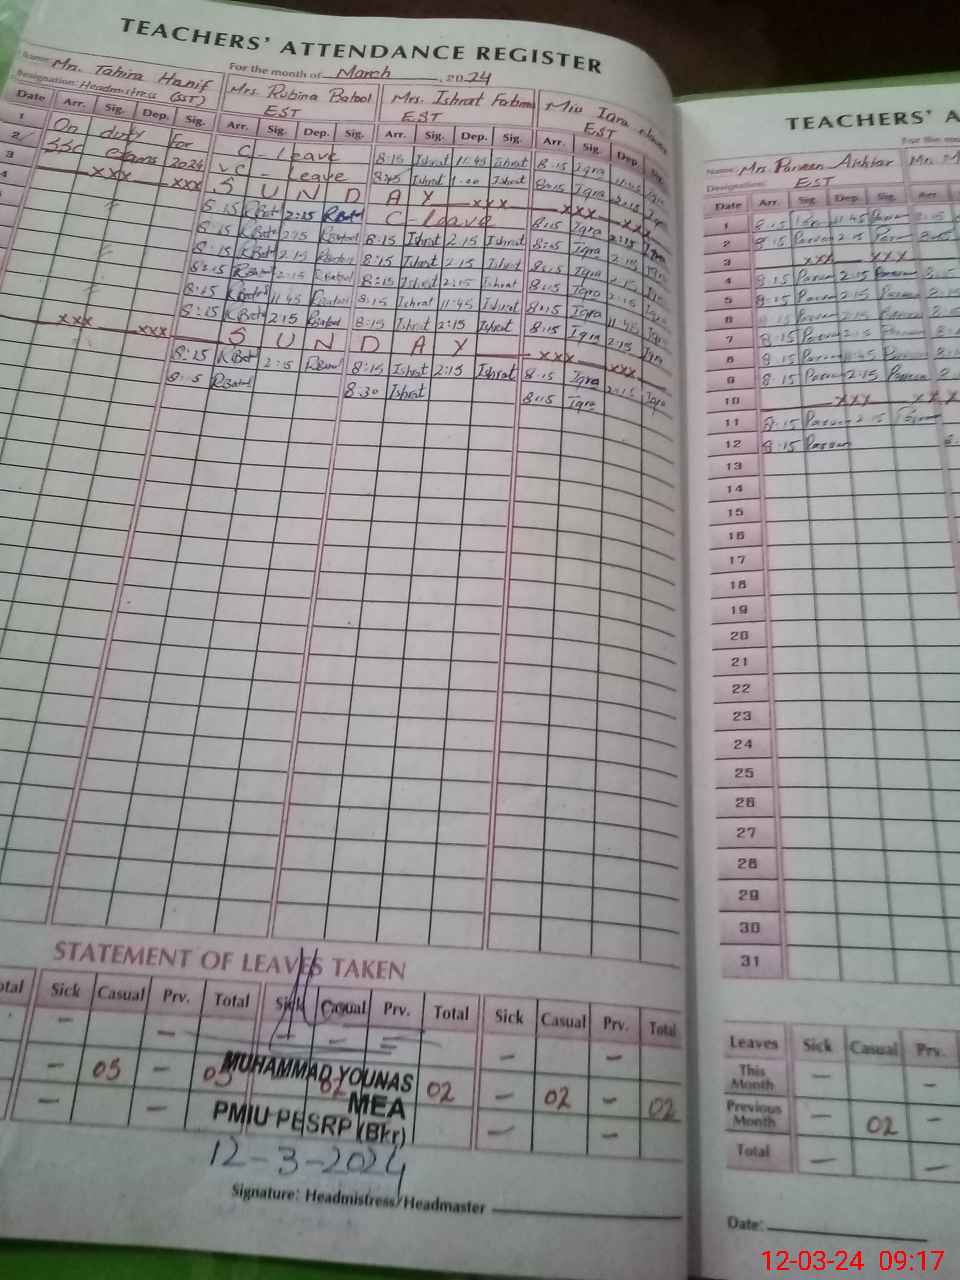 TEACHERS' ATTENDANCE REGISTER
For the month of March, 2024
Name: Mrs. Tahira Hanif Mrs. Rubina Batool Mrs. Ishrat Fatima Miss Iqra
Designation: Headmistress (SST) EST EST EST
Date Arr. Sig. Dep. Sig. Arr. Sig. Dep. Sig. Arr. Sig. Dep. Sig. Arr. Sig. Dep. Sig.
1 On duty for C-Leave 8:15 Ishrat 11:45 Ishrat 8:15 Iqra 11:45 Iqra
2 SSC exams 2024 C-Leave Ishrat Ishrat 8:15 Iqra 2:15 Iqra
3 xxx xxx S U N D A Y xxx xxx xxx
4 8:15 RBatool 2:15 RBatool C-Leave 8:15 Iqra 2:15 Iqra
8:15 RBatool 2:15 RBatool 8:15 Ishrat 2:15 Ishrat 8:15 Iqra 2:15 Iqra
8:15 RBatool 2:15 RBatool 8:15 Ishrat 2:15 Ishrat 8:15 Iqra 2:15 Iqra
8:15 RBatool 2:15 RBatool 8:15 Ishrat 2:15 Ishrat 8:15 Iqra 2:15 Iqra
8:15 RBatool 11:45 RBatool 8:15 Ishrat 11:45 Ishrat 8:15 Iqra 11:45 Iqra
8:15 RBatool 2:15 RBatool 8:15 Ishrat 2:15 Ishrat 8:15 Iqra 2:15 Iqra
xxx xxx S U N D A Y xxx xxx
8:15 RBatool 2:15 RBatool 8:15 Ishrat 2:15 Ishrat 8:15 Iqra 2:15 Iqra
8:15 RBatool 8:30 Ishrat 8:15 Iqra
STATEMENT OF LEAVES TAKEN
Sick Casual Prv. Total Sick Casual Prv. Total Sick Casual Prv. Total
– – – – = = – –
– 05 – 05 02 02 – 02 – 02
– – – –
MUHAMMAD YOUNAS
MEA
PMIU PESRP (Bkr)
12-3-2024
Signature: Headmistress/Headmaster
TEACHERS' A
For the
Name: Mrs. Parveen Akhtar
Designation: EST
Date Arr. Sig. Dep. Sig. Arr.
1 8:15 11:45 Parveen 8:15
2 8:15 Parveen 2:15 Parveen 8:15
3 xxx xxx
4 8:15 Parveen 2:15 Parveen 8:15
5 8:15 Parveen 2:15 Parveen 8:15
6 8:15 Parveen 2:15 Parveen 8:15
7 8:15 Parveen 2:15 Parveen 8:15
8 8:15 Parveen 11:45 Parveen
9 8:15 Parveen 2:15 Parveen
10 xxx xxx
11 8:15 Parveen 2:15 Parveen
12 8:15 Parveen
13
14
15
16
17
18
19
20
21
22
23
24
25
26
27
28
29
30
31
Leaves Sick Casual Prv.
This Month – –
Previous Month – 02 –
Total – –
Date:
12-03-24 09:17